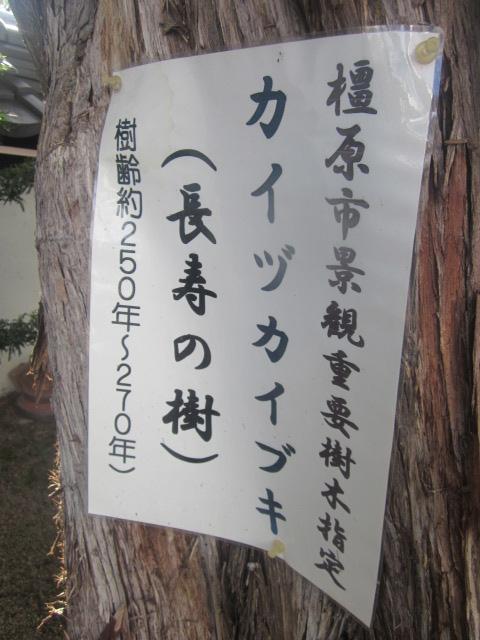 橿原市景観重要樹木指定
カイヅカイブキ
(長寿の樹)
樹齢約250年~270年)